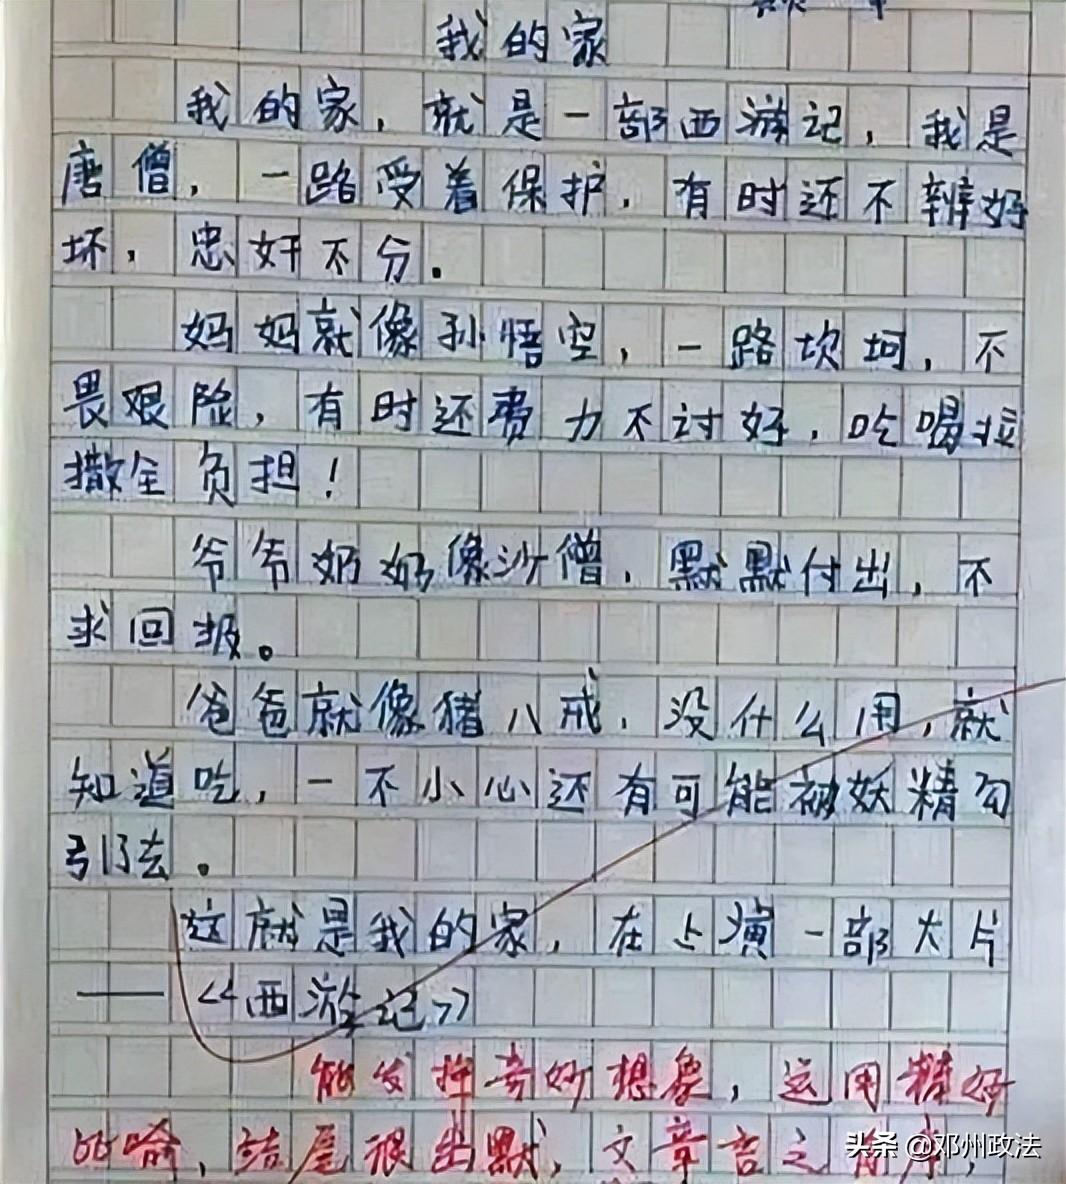 我的家
我的家，就是一部西游记，我是
唐僧，一路受着保护，有时还不辨好
坏，忠奸不分。
妈妈就像孙悟空，一路坎坷，不
畏艰险，有时还费力不讨好，吃喝拉
撒全负担！
爷爷奶奶像沙僧，默默付出，不
求回报。
爸爸就像猪八戒，没什么用，就
知道吃，一不小心还有可能被妖精勾
引了去。
这就是我的家，在上演一部大片
——《西游记》
能发挥奇妙想象，运用精好
比喻，结尾很幽默，文章言之有序，
头条 @邓州政法